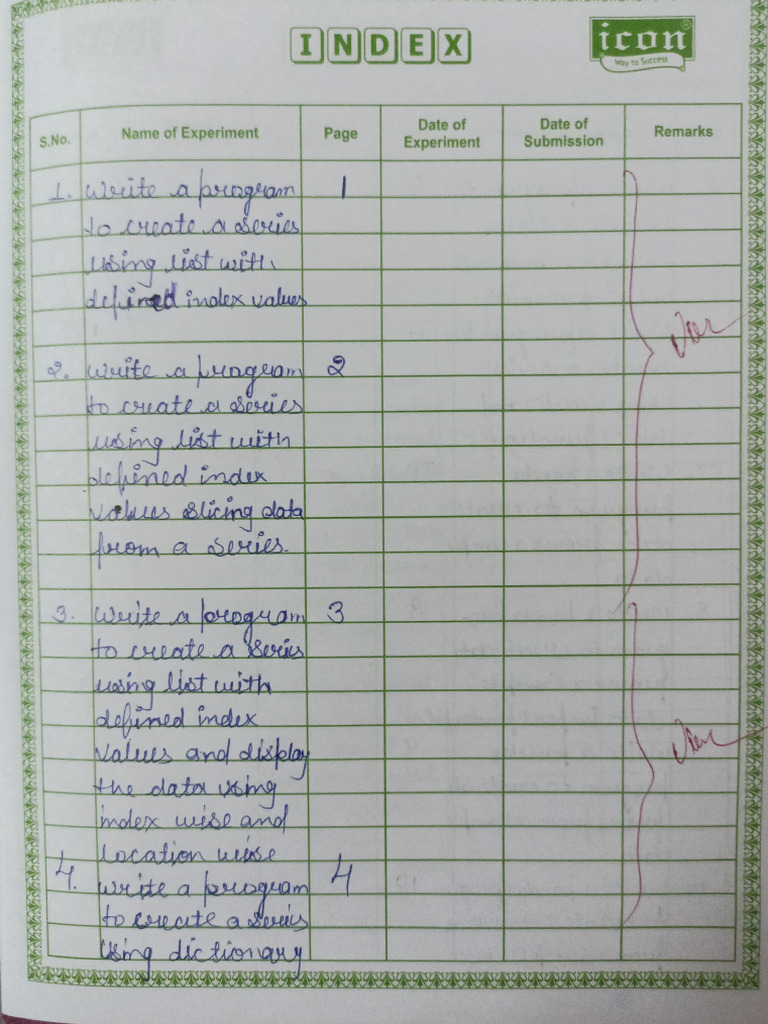 INDEX
icon
Way to Success
S.No. Name of Experiment Page Date of Experiment Date of Submission Remarks
1. Write a program 1
to create a series
using list with
defined index values
2. Write a program 2
to create a series
using list with
defined index
values slicing data
from a series.
3. Write a program 3
to create a series
using list with
defined index
values and display
the data using
index wise and
location wise
4. Write a program 4
to create a series
using dictionary